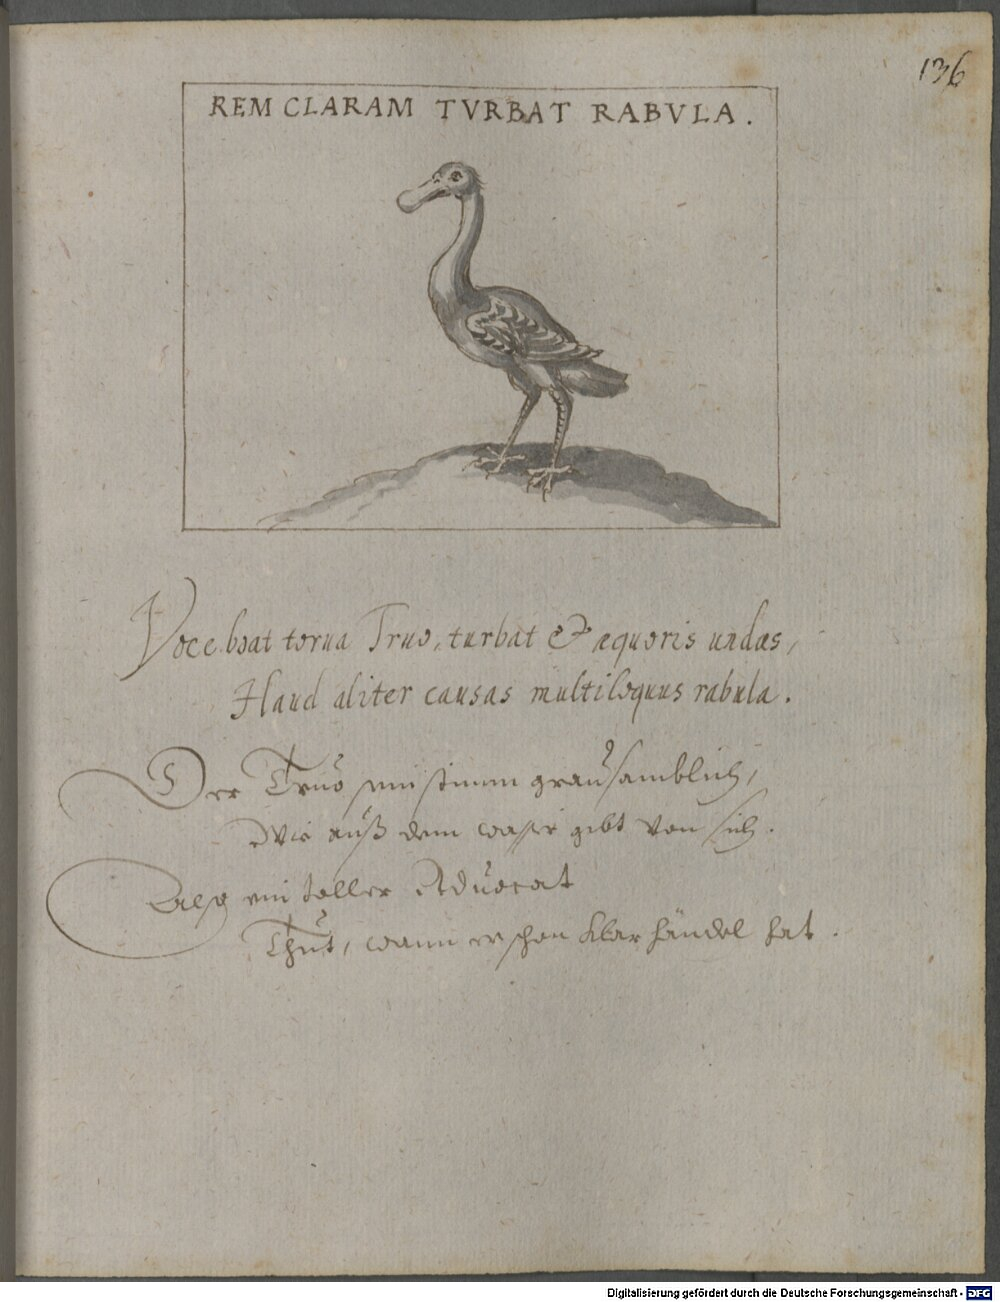 136
REM CLARAM TVRBAT RABVLA.
Voce boat torua Truo, turbat & æquoris undas,
Haud aliter causas multiloquus rabula.
Der Truo sein stimm grausamblich,
Wie auß dem wasser gibt von sich.
Also ein toller Aduocat
Thut, wann er schon klar händel hat.
Digitalisierung gefördert durch die Deutsche Forschungsgemeinschaft - DFG